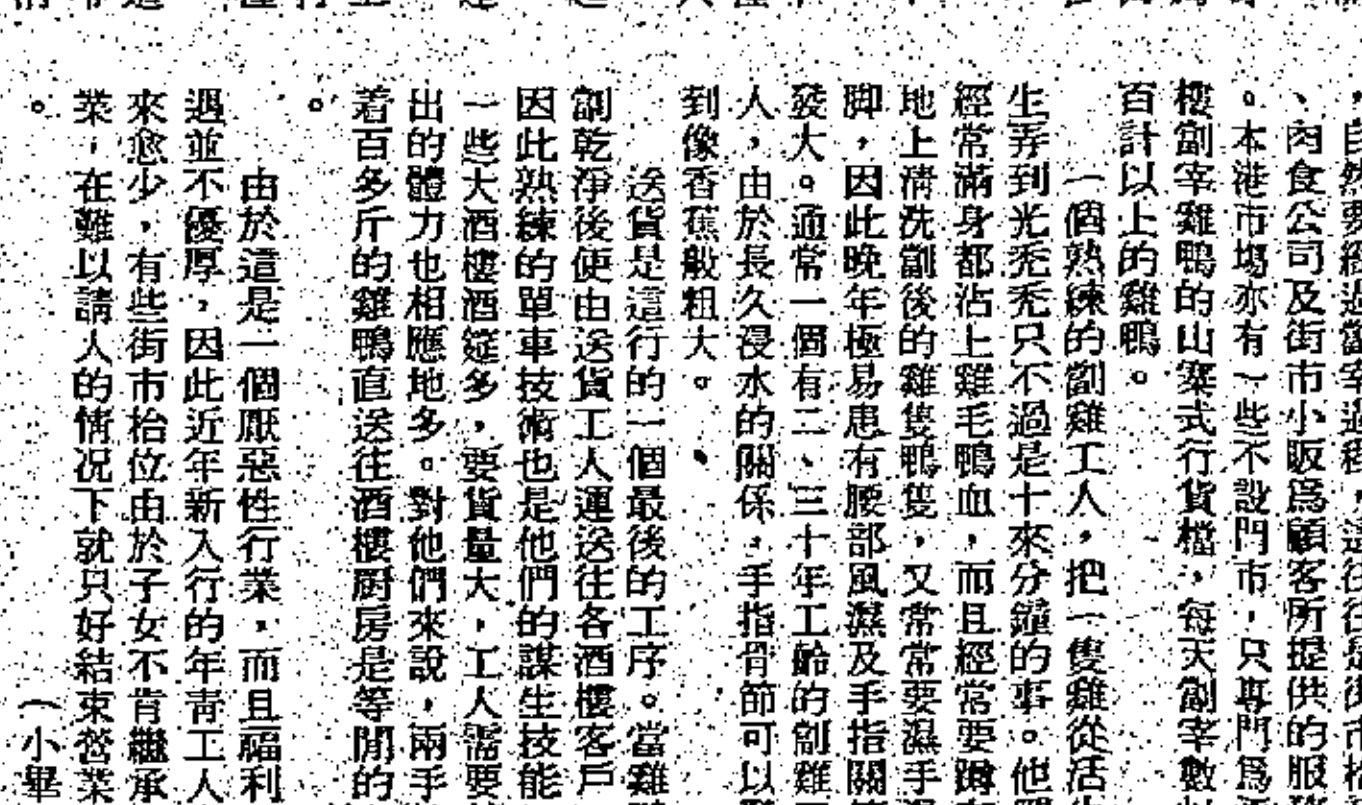 ，自然要經過劏宰過程，這往往是街市枱
、肉食公司及街市小販爲顧客所提供的服務
。本港市場亦有一些不設門市，只專門爲酒
樓劏宰雞鴨的山寨式行貨檔，每天劏宰數以
百計以上的雞鴨。
一個熟練的劏雞工人，把一隻雞從活生
生弄到光禿禿只不過是十來分鐘的事。他們
經常滿身都沾上雞毛鴨血，而且經常要蹲在
地上清洗劏後的雞隻鴨隻，又常常要濕手濕
脚，因此晚年極易患有腰部風濕及手指關節
發大。通常一個有二、三十年工齡的劏雞工
人，由於長久浸水的關係，手指骨節可以
到像香蕉般粗大。
送貨是這行的一個最後的工序。當雞鴨
劏乾淨後便由送貨工人運送往各酒樓客戶
因此熟練的單車技術也是他們的謀生技能
一些大酒樓酒筵多，要貨量大，工人需要
出的體力也相應地多。對他們來說，兩手
着百多斤的雞鴨直送往酒樓厨房是等閒的
。
由於這是一個厭惡性行業，而且福利
遇並不優厚，因此近年新入行的年靑工人
來愈少，有些街市枱位由於子女不肯繼承
業，在難以請人的情況下就只好結束營業
。
（小畢